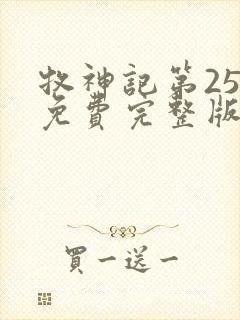 牧神記第25
免費完整版
買一送一